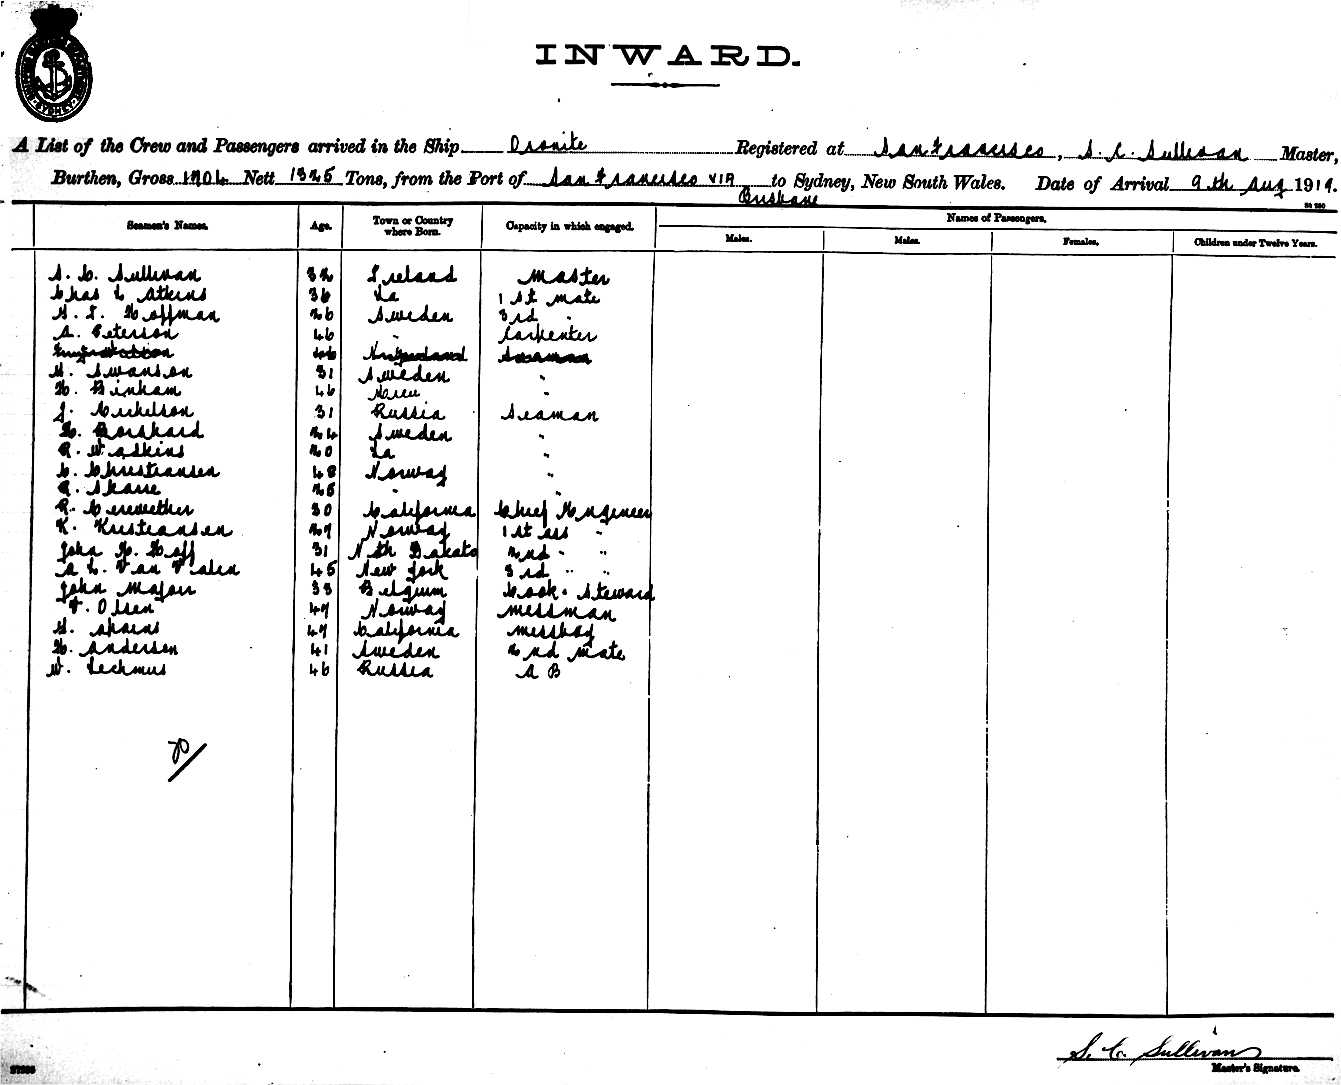 INWARD.
A List of the Crew and Passengers arrived in the Ship Oronite Registered at San Francisco, S. C. Sullivan Master,
Burthen, Gross 1904 Nett 1325 Tons, from the Port of San Francisco VIA Brisbane to Sydney, New South Wales. Date of Arrival 9th Aug 1919.
Seamen's Names. Age. Town or Country where Born. Capacity in which engaged. Names of Passengers.
Males. Males. Females. Children under Twelve Years.
S. C. Sullivan 32 Ireland Master
Chas L Atkins 36 La 1st mate
26 Sweden 3rd "
A. Peterson 46 " Carpenter
H. Swanson 31 Sweden "
H. Binham 46 "
J. 31 Russia Seaman
24 Sweden "
R. Watkins 20 La "
C. Christiansen 48 Norway "
R. 25 " "
R. Merewether 30 California Chief Engineer
K. Kristiansen 27 Norway 1st ass "
John H. Hoff 31 Nth Dakota 2nd " "
A L. Van Valen 45 New York 3rd " "
John Major 33 Belgium Cook. Steward
T. Olsen 47 Norway messman
47 California messboy
H. Anderson 41 Sweden 2nd mate
W. 46 Russia A B
S. C. Sullivan
Master's Signature.